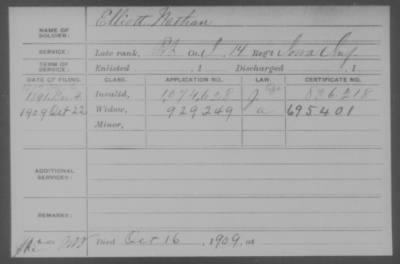 NAME OF SOLDIER: Elliott, Nathan
SERVICE: Late rank, Co. I, 14 Reg't Iowa Inf.
TERM OF SERVICE: Enlisted , 1 Discharged , 1
DATE OF FILING. CLASS. APPLICATION NO. LAW. CERTIFICATE NO.
Invalid, 1,074,628 826,218
1909 Oct 22 Widow, 929249 a 695401
Minor,
ADDITIONAL SERVICES:
REMARKS:
Died Oct 16, 1909, at